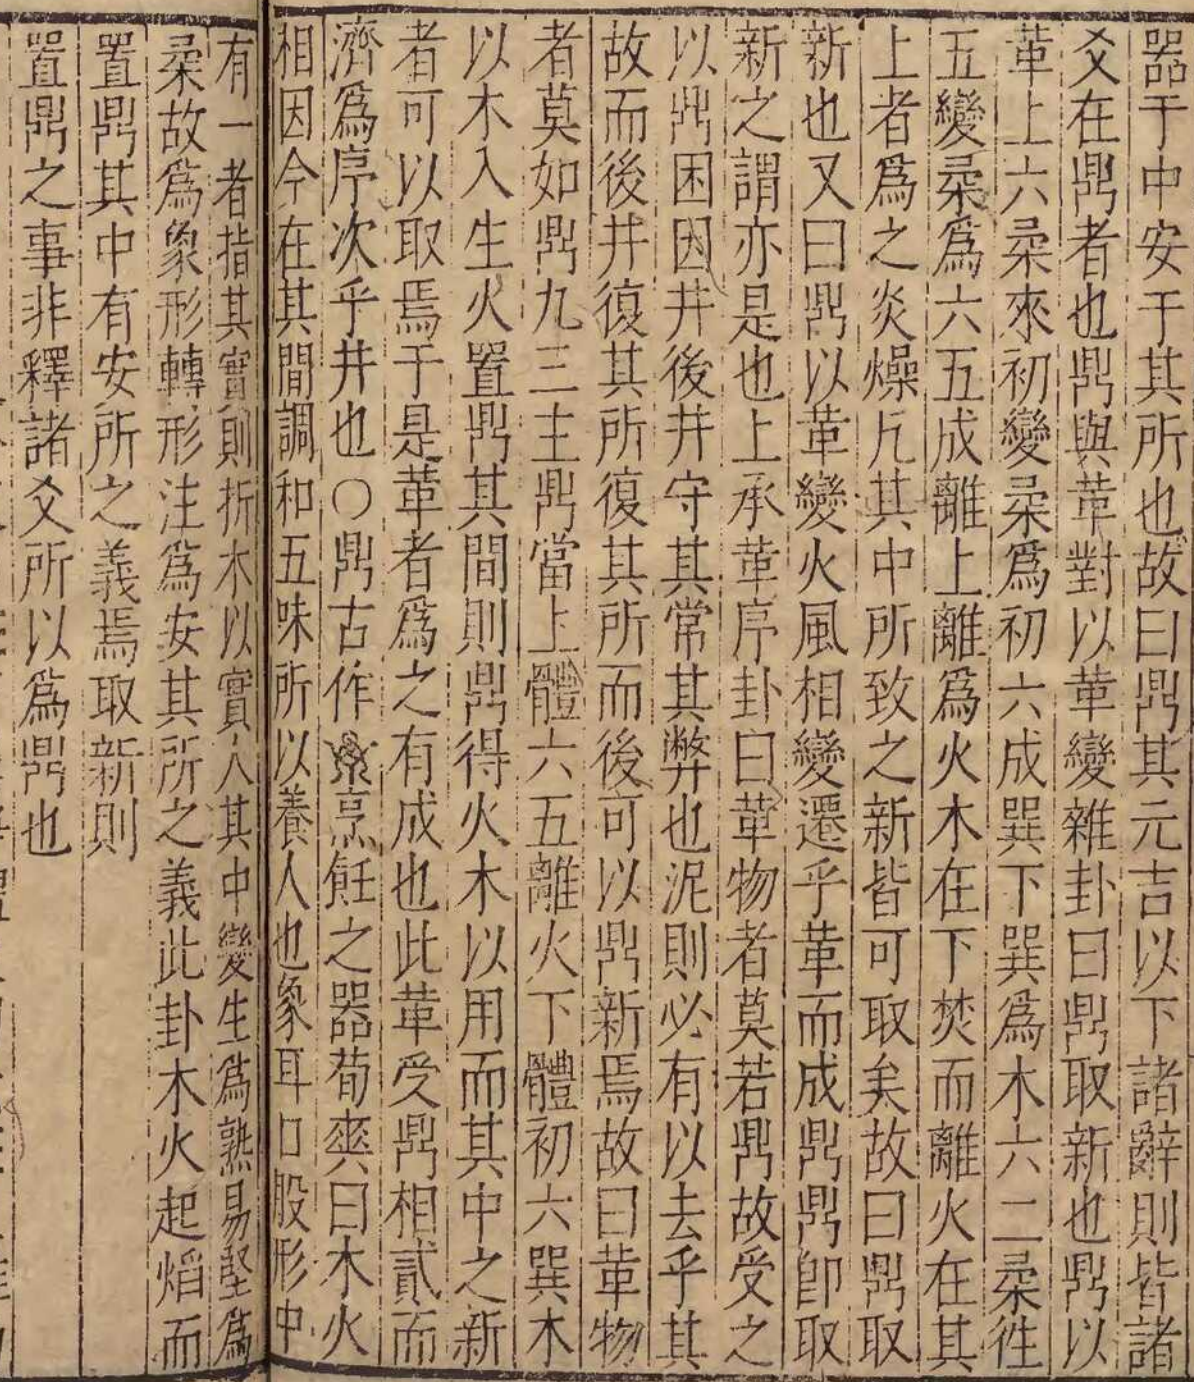 器于中安于其所也故曰鼎其元吉以下諸辭則皆諸
爻在鼎者也鼎與革對以革變雜卦曰鼎取新也鼎以
革上六柔來初變柔爲初六成巽下巽爲木六二柔徃
五變柔爲六五成離上離爲火木在下焚而離火在其
上者爲之炎燥凡其中所致之新皆可取矣故曰鼎取
新也又曰鼎以革變火風相變遷乎革而成鼎鼎卽取
新之謂亦是也上承革序卦曰革物者莫若鼎故受之
以鼎困因井後井守其常其弊也泥則必有以去乎其
故而後井復其所復其所而後可以鼎新焉故曰革物
者莫如鼎九三主鼎當上體六五離火下體初六巽木
以木入生火置鼎其間則鼎得火木以用而其中之新
者可以取焉于是革者爲之有成也此革受鼎相貳而
濟爲序次乎井也○鼎古作烹飪之器荀爽曰木火
相因今在其間調和五味所以養人也象耳口股形中
有一者指其實則折木以實人其中變生爲熟易堅爲
柔故爲象形轉形注爲安其所之義此卦木火起熖而
置鼎其中有安所之義焉取新則
置鼎之事非釋諸爻所以爲鼎也